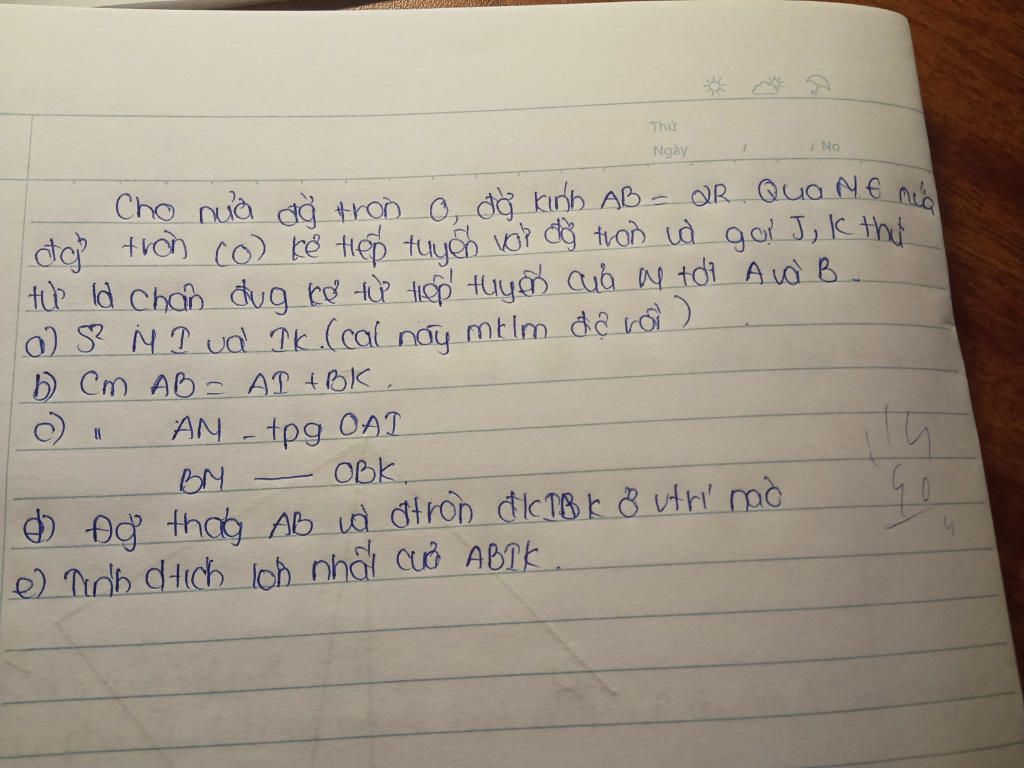 Thứ
Ngày / / No
Cho nửa đg tròn O, đg kính AB = 2R. Qua M ∈ nửa
đg tròn (O) kẻ tiếp tuyến với đg tròn và gọi I, K thứ
tự là chân đvg kẻ từ tiếp tuyến của M tới A và B.
a) S² MI và IK. (câi này mklm đc rồi)
b) Cm AB = AI + BK.
c) " AM - tpg OAI
BM — OBK.
d) Đg thag AB và đtròn đkIBK ở vtrí nào
e) Tính dtich lớn nhất của ABIK.
14
90
4